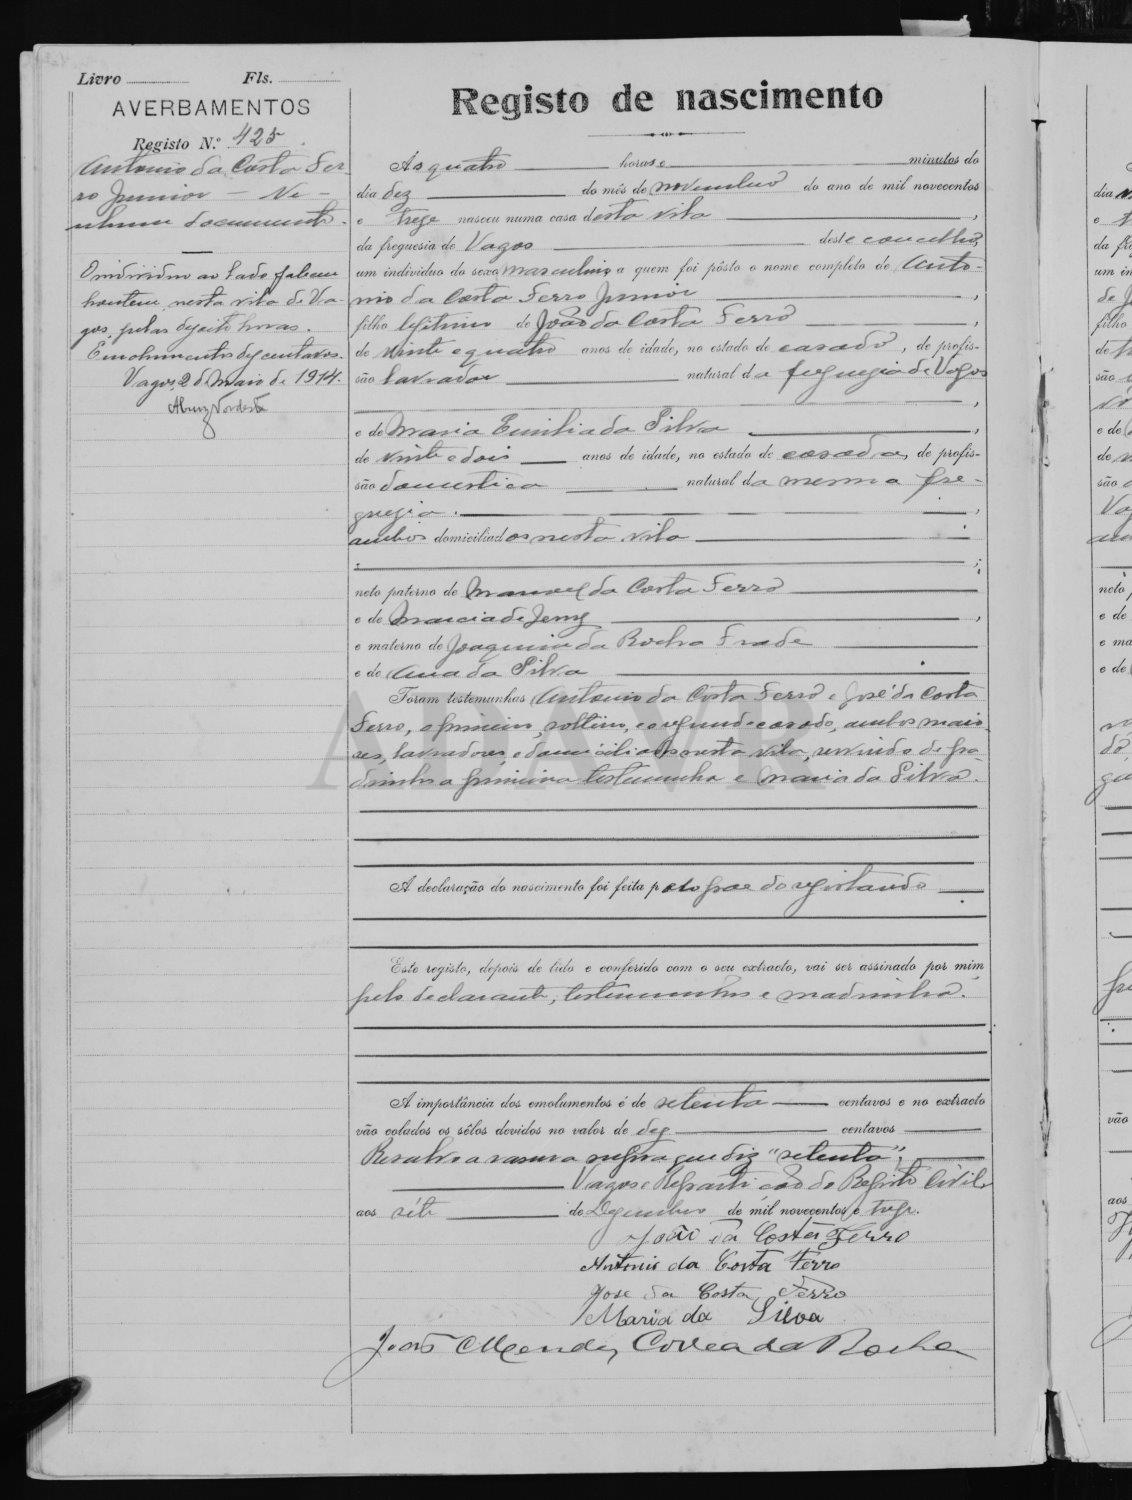 Livro Fls.
AVERBAMENTOS
Registo N.º 425
Antonio da Costa Fer-
ro Junior — Ne-
nhum documento.
O individuo ao lado faleceu
hontem, nesta vila de Va-
gos, pelas dezoito horas.
Emolumentos dez centavos.
Vagos, 2 de Maio de 1914.
Registo de nascimento
Ás quatro horas e minutos do
dia dez do mês de novembro do ano de mil novecentos
e treze nasceu numa casa desta vila,
da freguesia de Vagos deste concelho,
um individuo do sexo masculino a quem foi pôsto o nome completo de Anto-
nio da Costa Ferro Junior,
filho legitimo de João da Costa Ferro,
de vinte e quatro anos de idade, no estado de casado, de profis-
são lavrador natural da freguezia de Vagos,
e de Maria Emilia da Silva,
de vinte e dois anos de idade, no estado de casada, de profis-
são domestica natural da mesma fre-
guezia.,
ambos domiciliados nesta vila
;
neto paterno de Manuel da Costa Ferro
e de Marcia de Jesus,
e materno de Joaquim da Rocha Frade
e de Ana da Silva.
Foram testemunhas Antonio da Costa Ferro e José da Costa
Ferro, o primeiro, solteiro, e o segundo casado, ambos maio-
res, lavradores, e domiciliados nesta vila, servindo de pa-
drinho a primeira testemunha e Maria da Silva.
A declaração do nascimento foi feita pelo pae do registando.
Este registo, depois de lido e conferido com o seu extracto, vai ser assinado por mim,
pelo declarante, testemunhas e madrinha.
A importância dos emolumentos é de setenta centavos e no extracto
vão colados os sêlos devidos no valor de dez centavos
Resalvo a rasura supra que diz "setenta";
Vagos e Repartição do Registo Civil,
aos sete de Dezembro de mil novecentos e treze.
João da Costa Ferro
Antonio da Costa Ferro
Jose da Costa Ferro
Maria da Silva
João Mendes Correa da Rocha